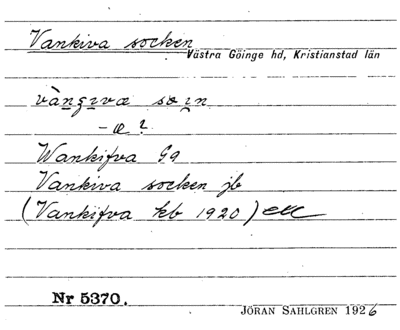 Vankiva socken
Västra Göinge hd, Kristianstad län
vàŋʒɪvæ sɷ ɪn
-æ?
Wankifva G9
Vankiva socken jb
(Vankifva kb 1920) ell
Nr 5370.
JÖRAN SAHLGREN 1926